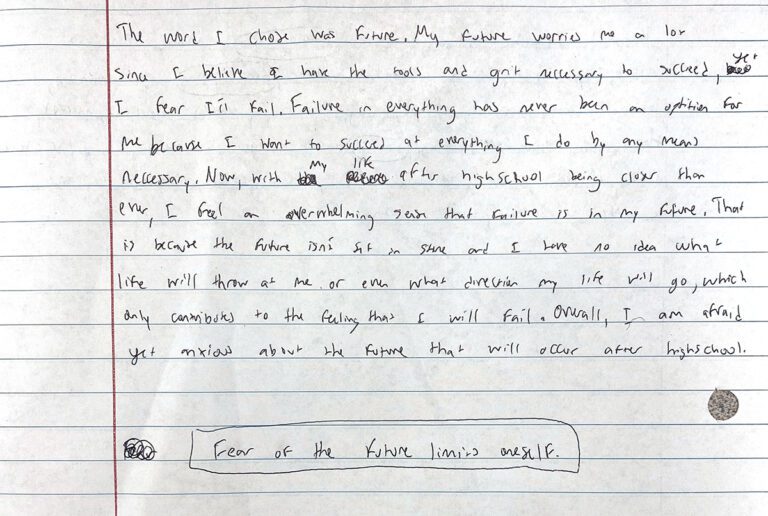 The word I chose was future. My future worries me a lot
since I believe I have the tools and grit neccessary to succeed, yet
I fear I'll fail. Failure in everything has never been an optition for
me because I want to succeed at everything I do by any means
neccessary. Now, with my life after highschool being closer than
ever, I feel an overwhelming sense that failure is in my future. That
is because the future isn't sit in stone and I have no idea what
life will throw at me or even what direction my life will go, which
only contributes to the feeling that I will fail. Overall, I am afraid
yet anxious about the future that will occur after highschool.
Fear of the future limits oneself.